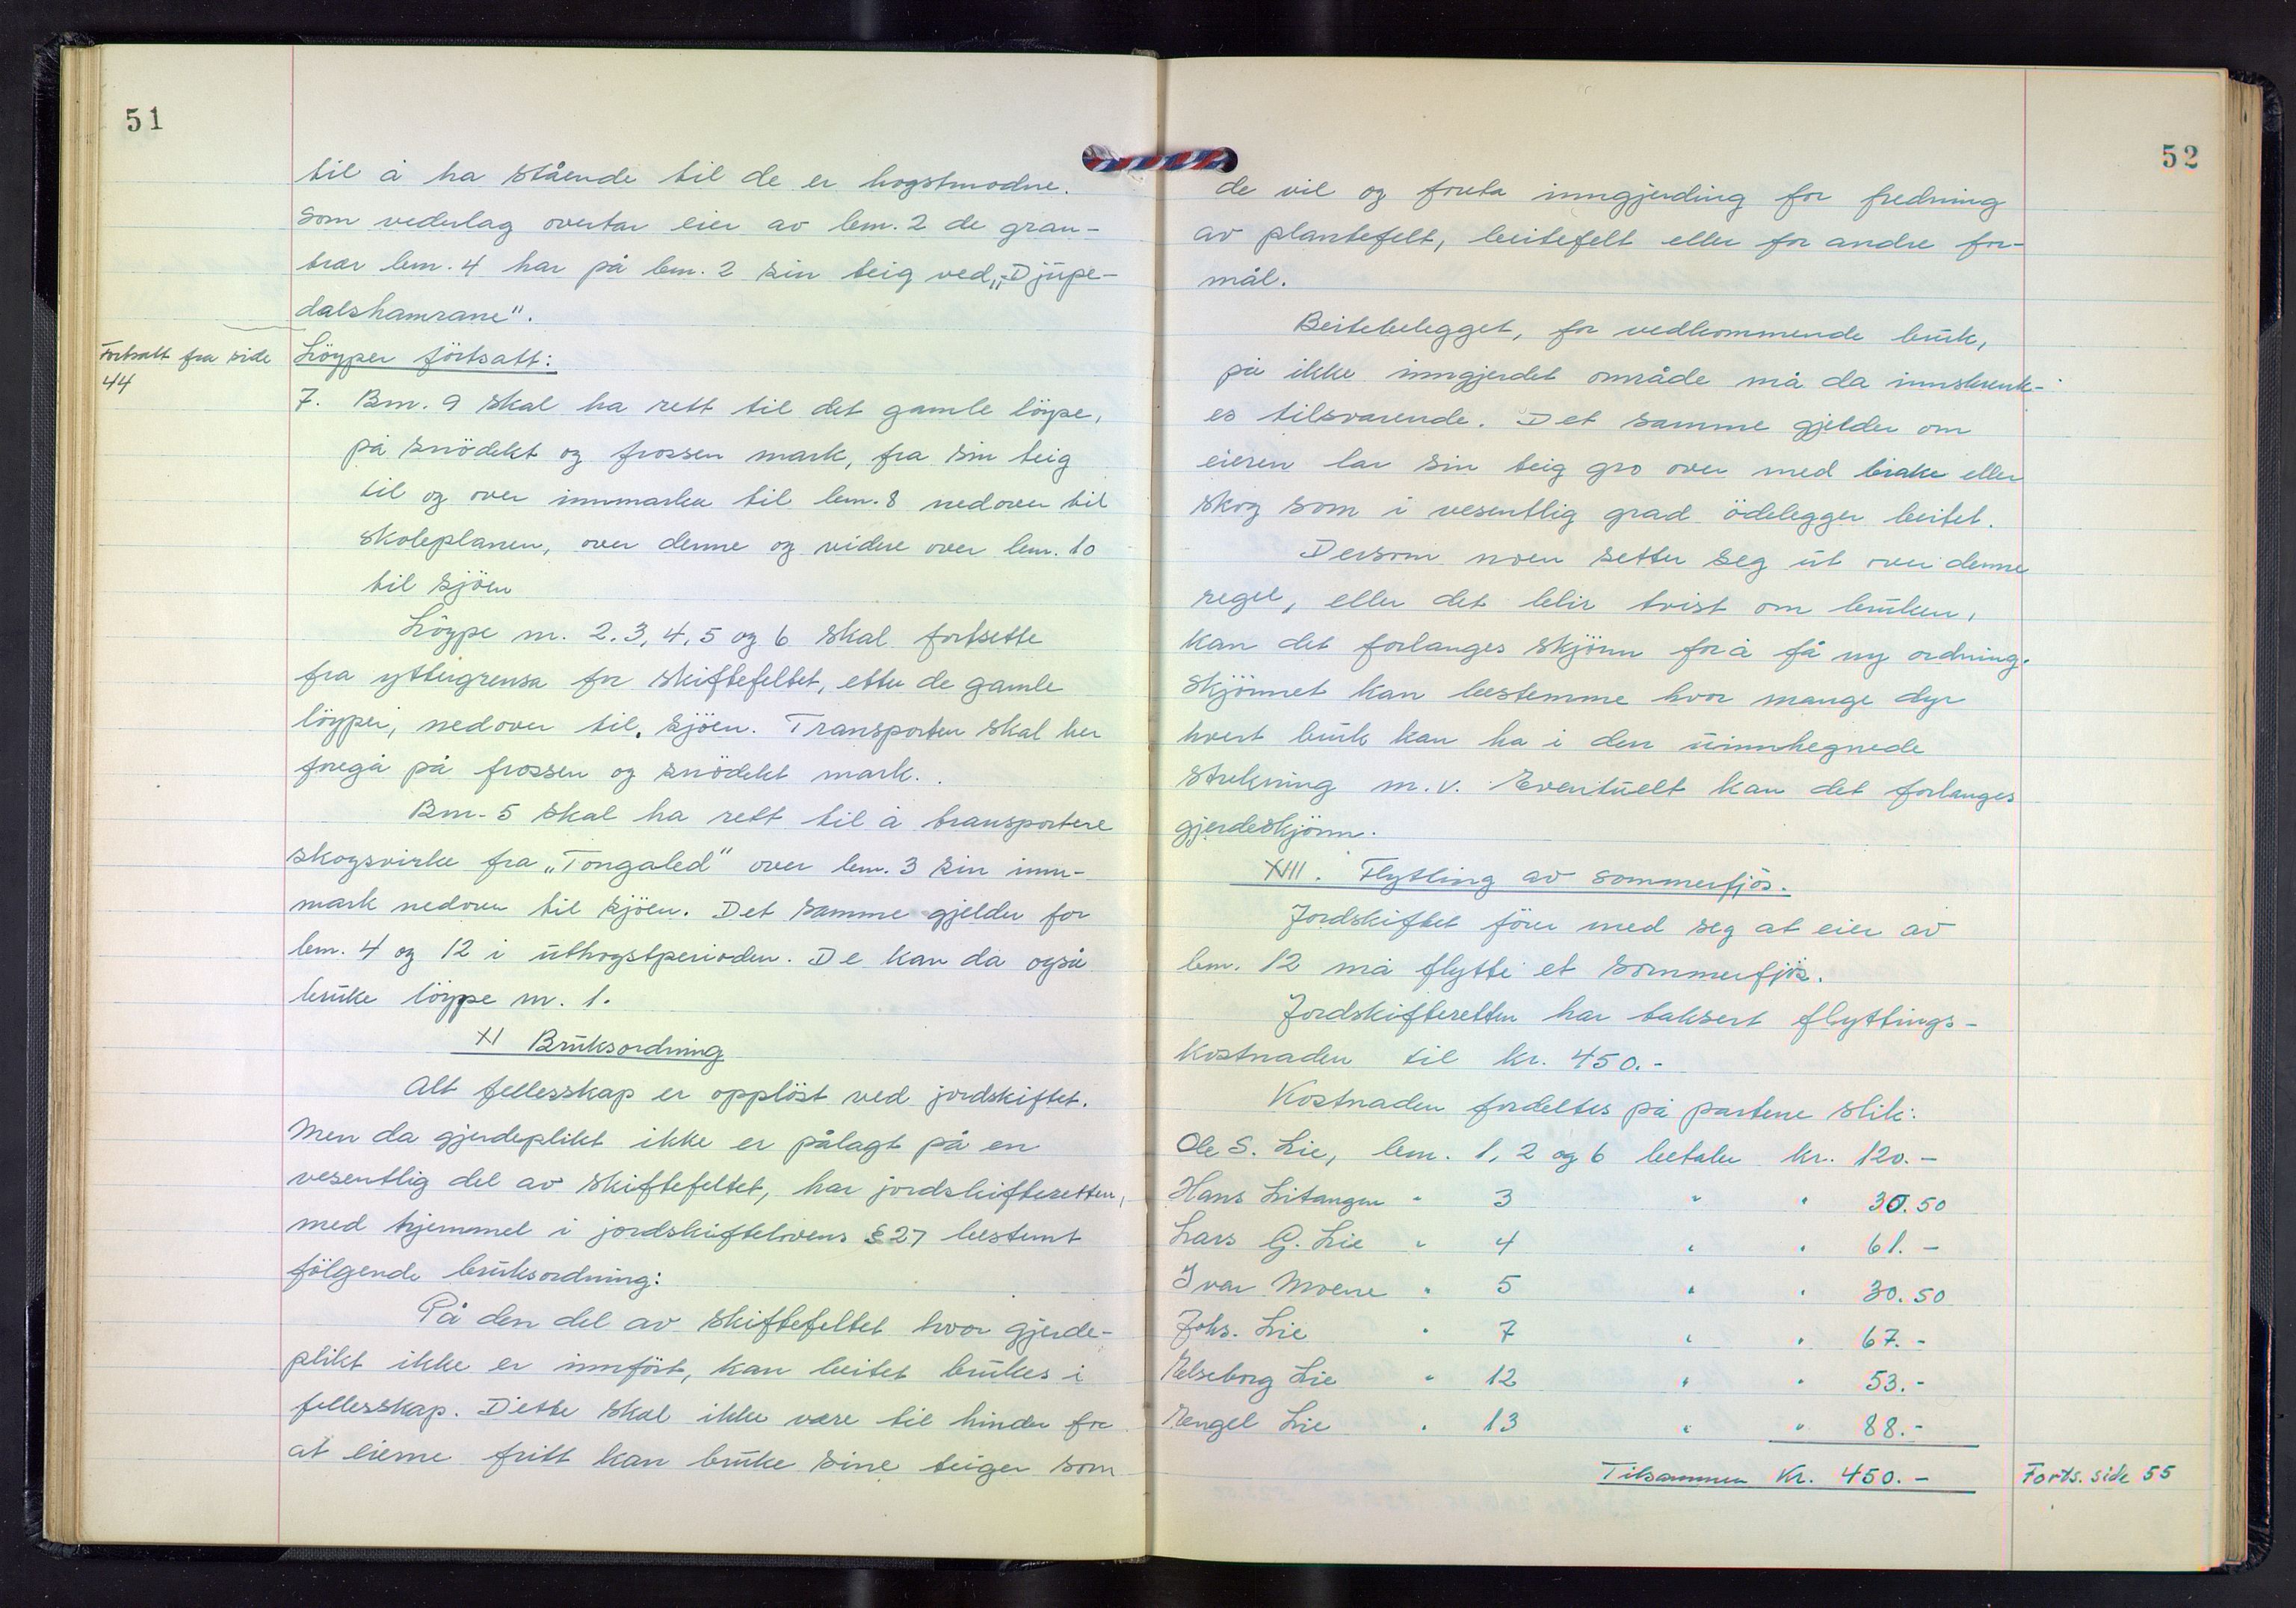 51
til å ha stående til de er hogstmodne.
Som vederlag overtar eier av bnr. 2 de gran-
trær bnr. 4 har på bnr. 2 sin teig ved „Djupe-
dalshamrane".
Fortsatt fra side
44
Löyper fortsatt:
7. Bnr. 9 skal ha rett til det gamle löype,
på snödekt og frossen mark, fra sin teig
til og over innmarka til bnr. 8 nedover til
skoleplanen, over denne og videre over bnr. 10
til sjöen
Löype nr. 2, 3, 4, 5 og 6 skal fortsette
fra yttergrensa for skiftefeltet, etter de gamle
löyper, nedover til sjöen. Transporten skal her
foregå på frossen og snödekt mark.
Bnr. 5 skal ha rett til å transportere
skogsvirke fra „Tongaled" over bnr. 3 sin inn-
mark nedover til sjöen. Det samme gjelder for
bnr. 4 og 12 i uthogstperioden. De kan da også
bruke löype nr. 1.
XI Bruksordning
Alt fellesskap er opplöst ved jordskiftet.
Men da gjerdeplikt ikke er pålagt på en
vesentlig del av skiftefeltet, har jordskifteretten,
med hjemmel i jordskiftelovens § 27 bestemt
fölgende bruksordning:
På den del av skiftefeltet hvor gjerde-
plikt ikke er innfört, kan beitet brukes i
fellesskap. Dette skal ikke være til hinder for
at eierne fritt kan bruke sine teiger som
52
de vil og foreta inngjerding for fredning
av plantefelt, beitefelt eller for andre for-
mål.
Beitebelegget, for vedkommende bruk,
på ikke inngjerdet område må da innskrenk-
es tilsvarende. Det samme gjelder om
eieren lar sin teig gro over med brake eller
skog som i vesentlig grad ödelegger beitet.
Dersom noen setter seg ut over denne
regel, eller det blir tvist om bruken,
kan det forlanges skjönn for å få ny ordning.
Skjönnet kan bestemme hvor mange dyr
hvert bruk kan ha i den uinnhegnede
strekning m.v. Eventuelt kan det forlanges
gjerdeskjönn.
XIII. Flytting av sommerfjös.
Jordskiftet förer med seg at eier av
bnr. 12 må flytte et sommerfjös.
Jordskifteretten har taksert flyttings-
kostnaden til kr. 450.-
Kostnaden fordeltes på partene slik:
Ole S. Lie, bnr. 1, 2 og 6 betaler kr. 120.-
Hans Litangen " 3 " " 30.50
Lars G. Lie " 4 " " 61.-
Ivar Moene " 5 " " 30.50
Johs. Lie " 7 " " 67.-
Elseborg Lie " 12 " " 53.-
Engel Lie " 13 " " 88.-
Tilsammen Kr. 450.-
Forts. side 55